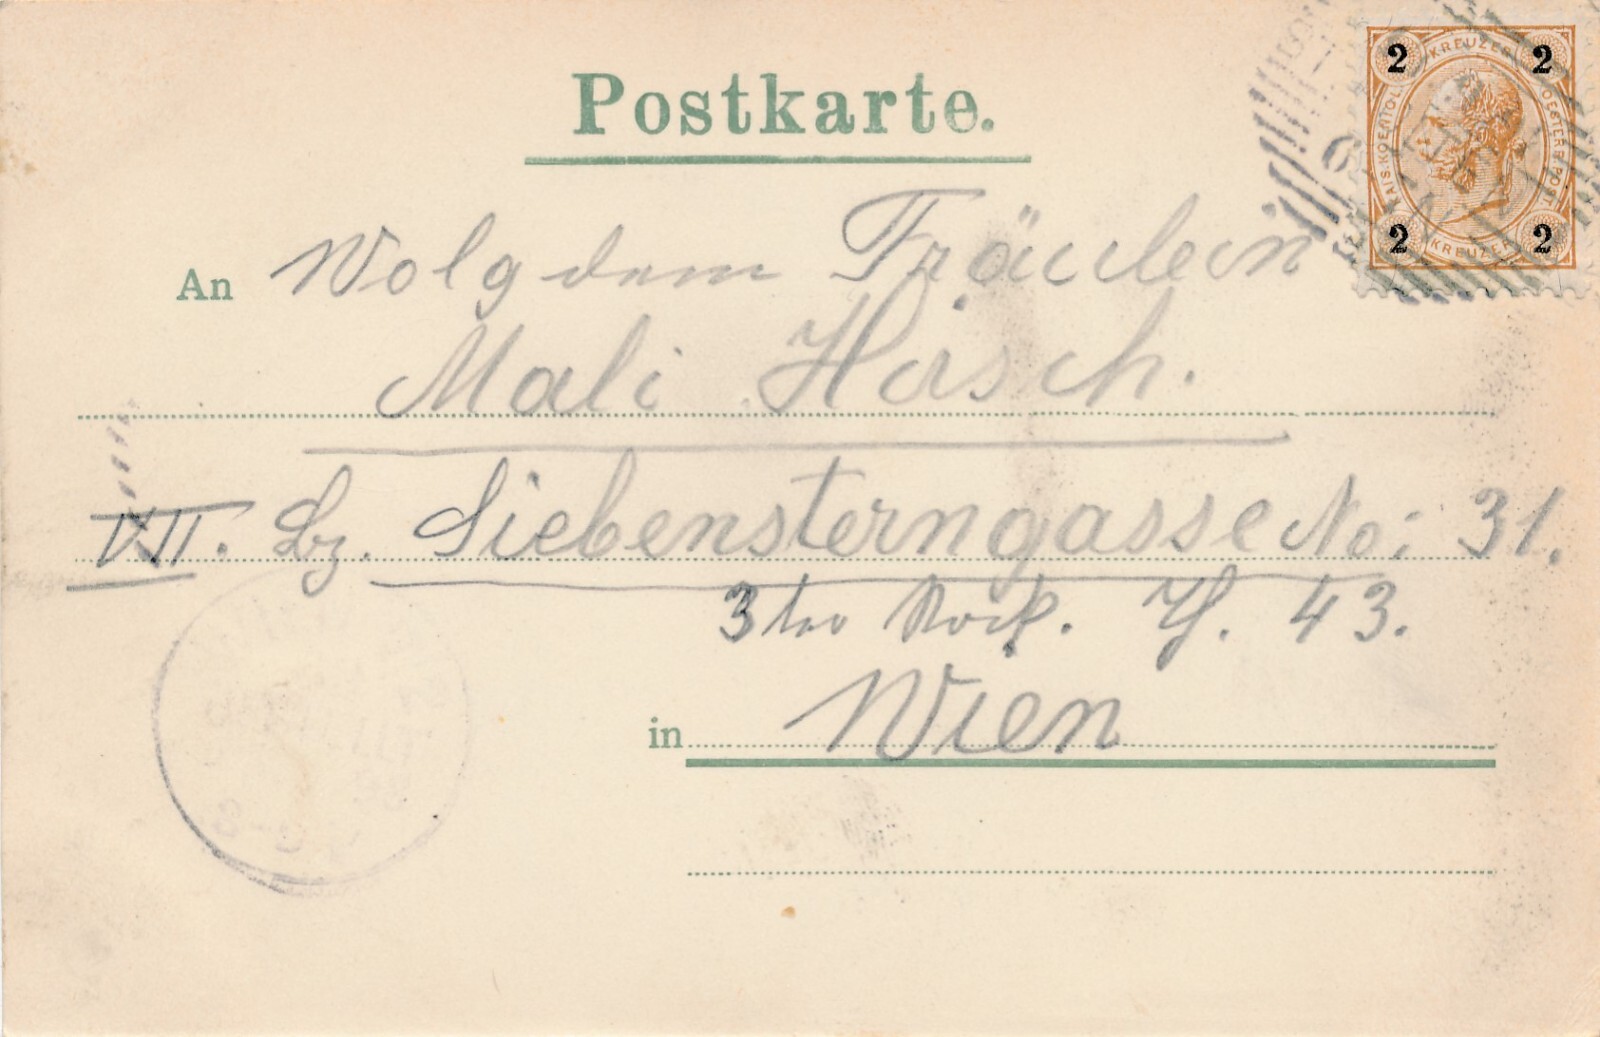 Postkarte.
KREUZER
2 2
KAIS. KOENIGL. OESTERR. POST
2 2
KREUZER
6
An Wolg dem Fräulein
Mali Hirsch.
VII. Bz. Siebensterngasse No: 31.
3ter Stock. T. 43.
in Wien